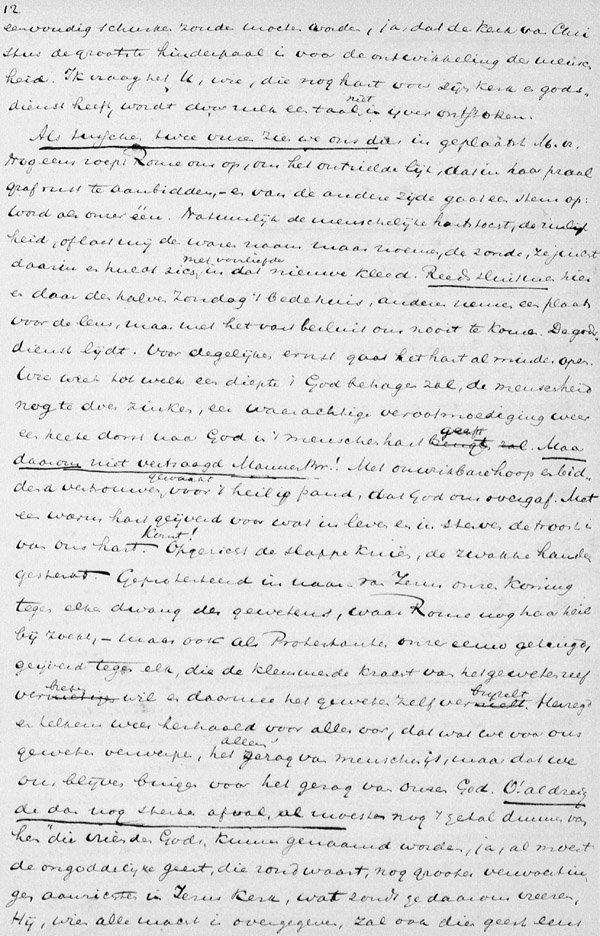 12
eenvoudig schenker zonde moeten worden, ja, dat de kerk van Chri
stus de grootste hinderpaal is voor de ontwikkeling der mensch
heid. Ik vraag het U, wie, die nog hart voor zijn kerk en gods-
dienst heeft, wordt door zulk een taal niet in ijver ontstoken.
Als tusschen twee vuren zien we ons dus in geplaatst M. Br.
Nog eens roept Rome ons op, om het ontzielde lijk, dat in haar praal
graf rust te aanbidden, – en van de andere zijde gaat een stem op:
word als onzer één. Natuurlijk de menschelijke hartstocht, de zinlijk
heid, of laat mij de ware naam maar noemen, de zonde, ze juicht
daarin en hult zich, met voorliefde in dat nieuwe kleed. Reeds sluit men hier
en daar des halve Zondag 't bedehuis, anderen nemen een plaats
voor de leus, maar met het vast besluit om nooit te komen. De gods-
dienst lijdt. Voor degelijken ernst gaat het hart al minder open.
Wie weet tot welk een diepte 't God behagen zal, de menschheid
nog te doen zinken, eer waarachtige verootmoediging weer
een heete dorst naar God in 't menschenhart geeft. Maar
daarom niet vertraagd Mannen Br.! Met onwrikbare hoop en bid-
dend vertrouwen, gewaakt voor 't heilig pand, dat God ons overgaf. Met
een warm hart geijverd voor wat in leven en in sterven de troost is
van ons hart. Komt! Opgericht de slappe knieën, de zwakke handen
gesterkt. Geprotesteerd in naam van Jezus onzen Koning
tegen elken dwang des gewetens, waar Rome nog haar heil
bij zoekt, – maar ook als Protestanten onzer eeuw getuigd,
geijverd tegen elk, die de klemmende kracht van het geweten zelf
breken wil en daarmee het geweten zelf verbrijzelt. Herzegd
en telkens weer herhaald voor aller oor, dat wat we voor ons
geweten verwerpen, het gezag van menschen is, maar dat we
ons blijven buigen voor het gezag van onzen God. O! al dreig
de dan nog sterker afval, al moesten nog 't getal dunner van
hen "die vrienden Gods" kunnen genaamd worden, ja, al moest
de ongoddelijke geest, die rondwaart, nog grooter verwoestin-
gen aanrichten in Jezus Kerk, wat zoudt ge daarom vreezen,
Hij, wien alle macht is overgegeven, zal ook dien geest eens